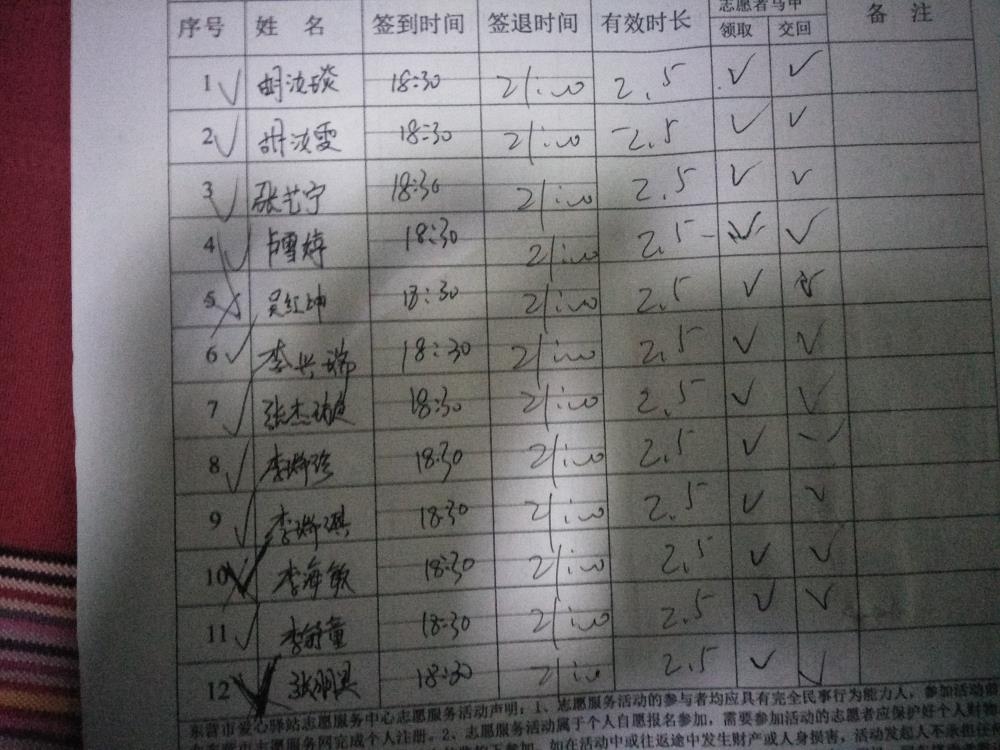 序号 姓 名 签到时间 签退时间 有效时长 志愿者马甲 备 注
领取 交回
1 ✓ 胡汝琰 18:30 21:00 2.5 ✓ ✓
2 ✓ 胡汝雯 18:30 21:00 2.5 ✓ ✓
3 ✓ 张艺宁 18:30 21:00 2.5 ✓ ✓
4 ✓ 卢雪婷 18:30 21:00 2.5 ✓ ✓
5 吴红坤 18:30 21:00 2.5 ✓
6 ✓ 李兴瑞 18:30 21:00 2.5 ✓ ✓
7 ✓ 张杰 18:30 21:00 2.5 ✓ ✓
8 ✓ 李瑞珍 18:30 21:00 2.5 ✓ ✓
9 ✓ 李瑞琪 18:30 21:00 2.5 ✓ ✓
10 ✓ 李海敏 18:30 21:00 2.5 ✓ ✓
11 ✓ 李 童 18:30 21:00 2.5 ✓ ✓
12 ✓ 张明淇 18:30 21:00 2.5 ✓ ✓
东营市爱心驿站志愿服务中心志愿服务活动声明：1、志愿服务活动的参与者均应具有完全民事行为能力人，参加活动前
志愿服务网完成个人注册。2、志愿服务活动属于个人自愿报名参加，需要参加活动的志愿者应保护好个人财物
参加。如在活动中或往返途中发生财产或人身损害，活动发起人不承担任